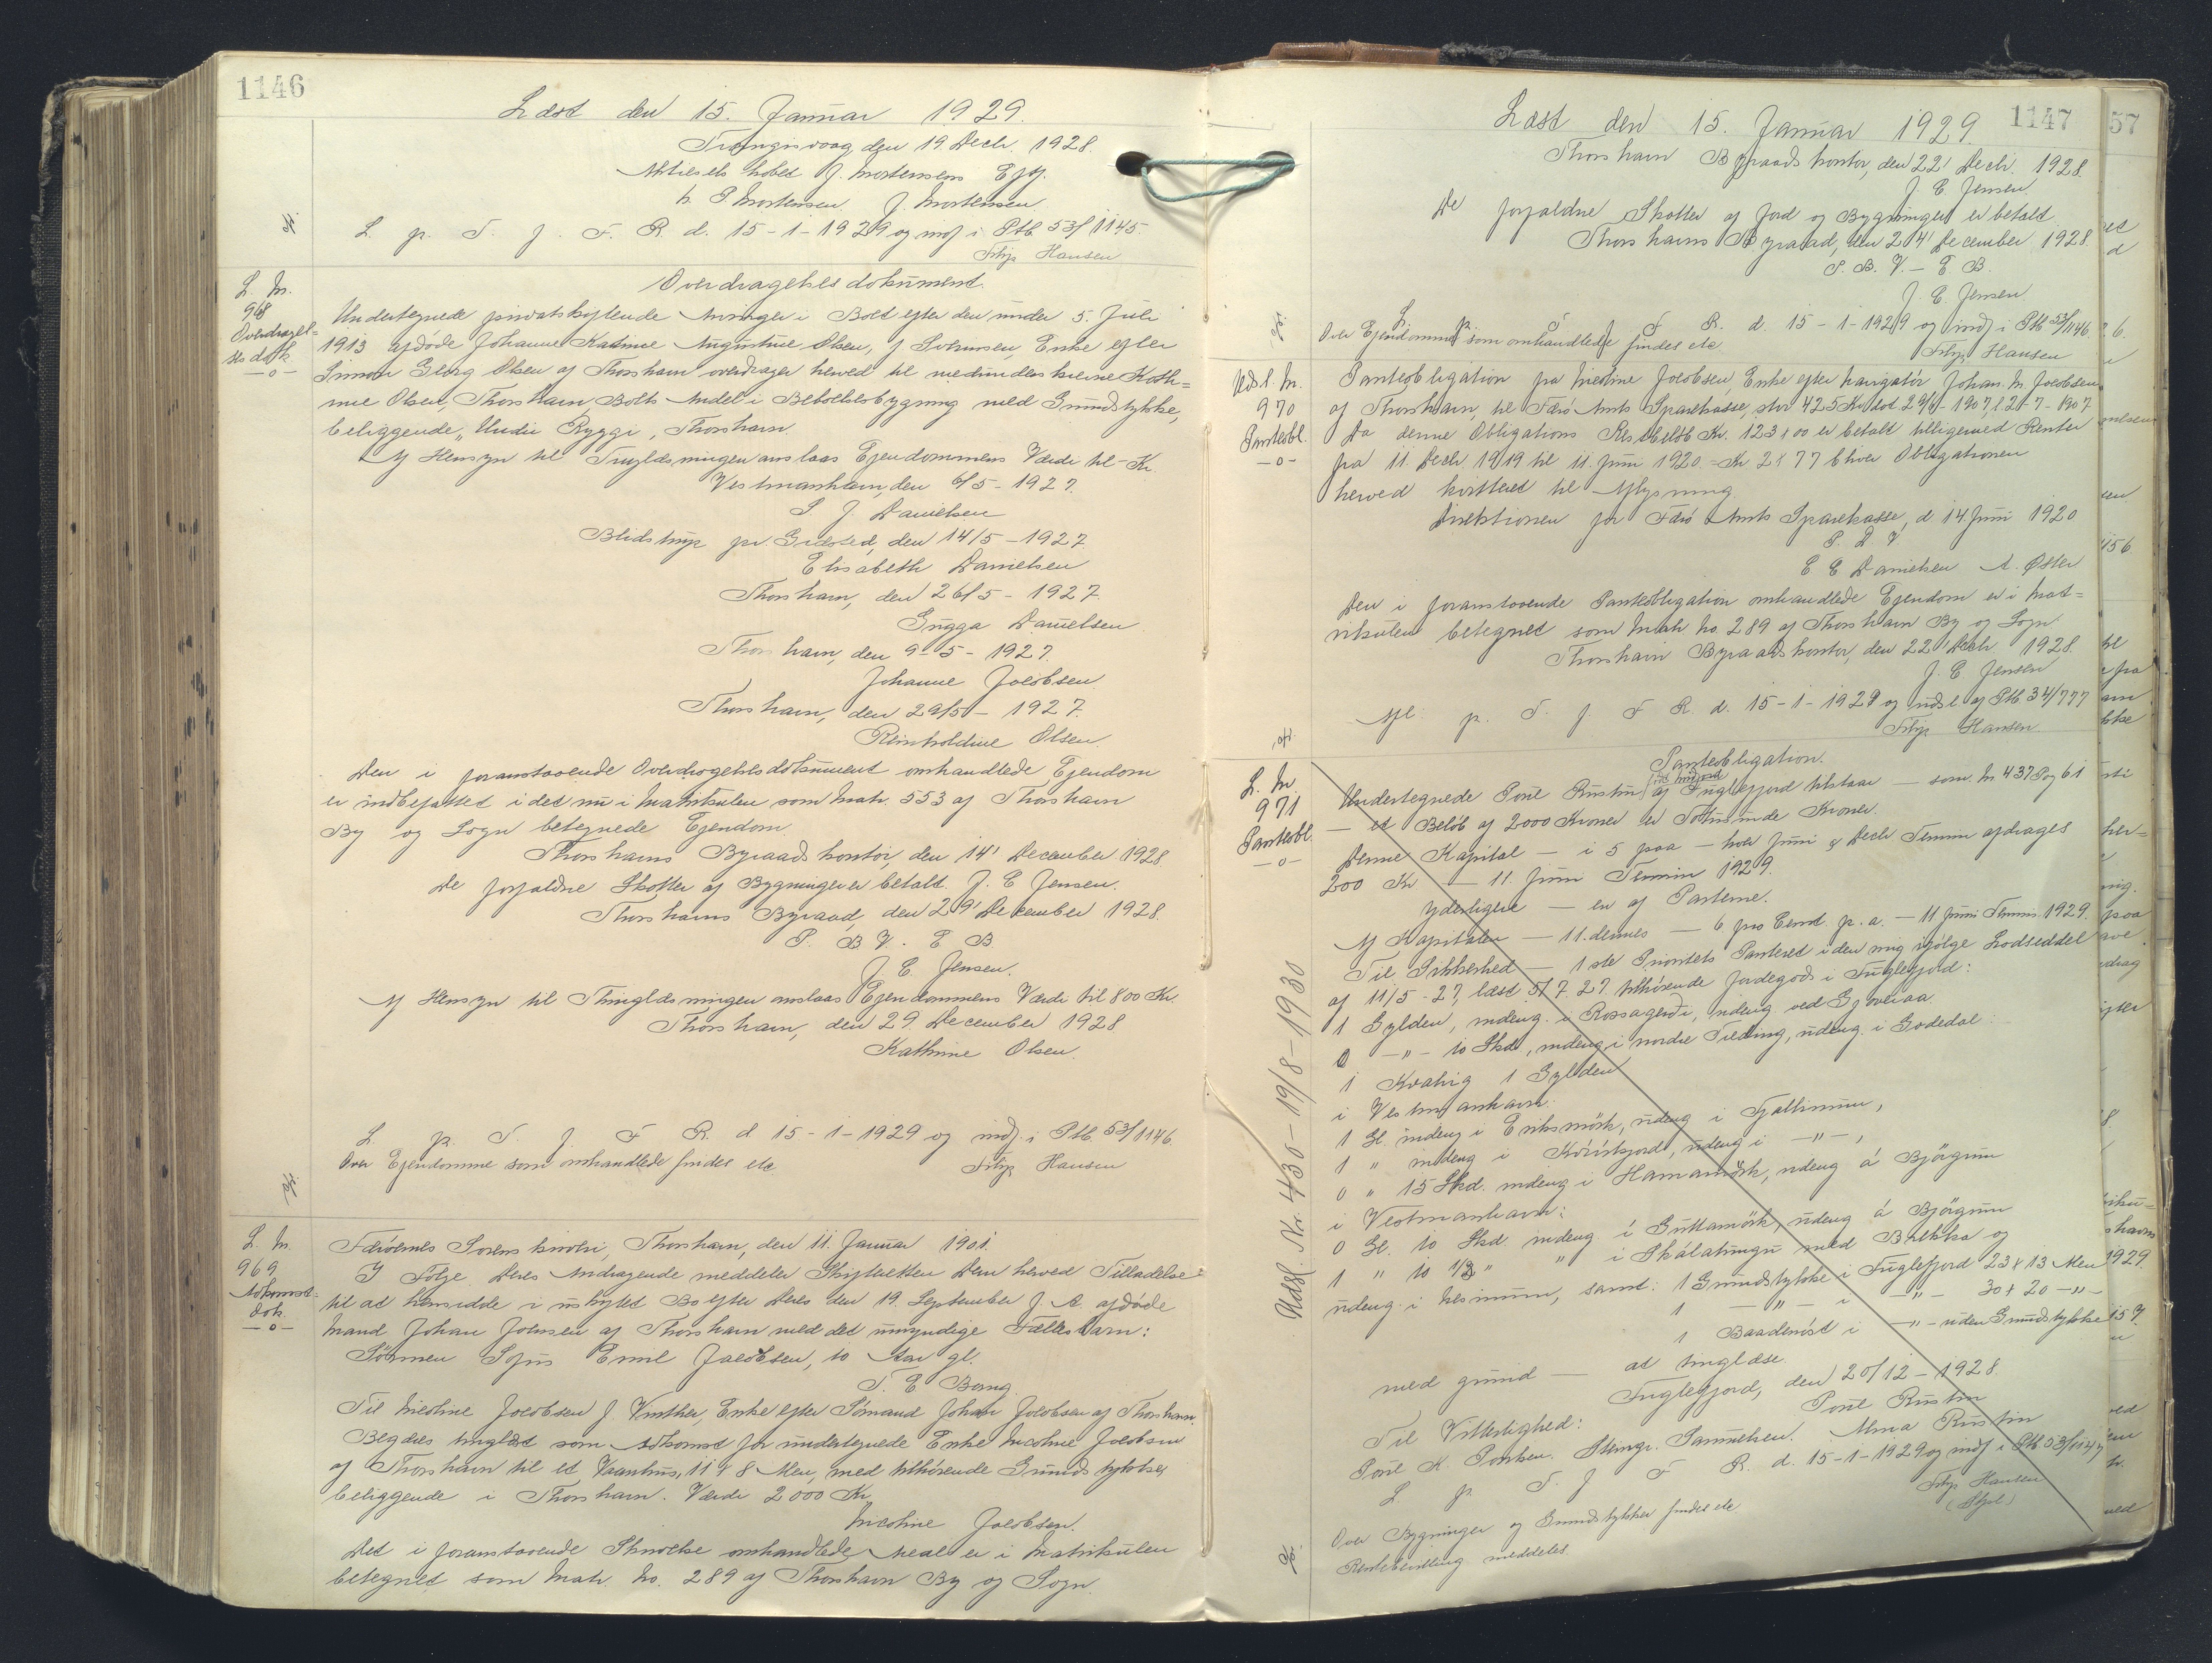 1146
Læst den 15. Januar 1929.
Trangisvaag den 19 Decb. 1928.
Aktieselskabet J. Mortensens Eftf.
P. Mortensen J. Mortensen
L. p. T. f. F. R. d. 15-1-1929 og indf i Ptb 53/1145.
Filip Hansen
L. Nr.
968
Overdragel=
ses dok
—o—
Overdragelsesdokument.
Undertegnede privatskiftende Arvinger i Boet efter den under 5. Juli
1913 afdøde Johanne Katrine Augustine Olsen, f Svennsen, Enke efter
Simon Georg Olsen af Thorshavn overdrager herved til medunderskrevne Kath=
rine Olsen, Thorshavn Boets Andel i Beboelsesbygning med Grundstykke,
beliggende „Undir Ryggi, Thorshavn.
Af Hensyn til Tinglæsningen anslaas Ejendommens Værdi til – Kr.
Vestmanhavn, den 6/5 - 1927.
J. Danielsen
Blidstrup pr. Græsted, den 14/5 - 1927
Elisabeth Danielsen
Thorshavn, den 26/5 - 1927.
Sugga Danielsen
Thorshavn, den 9-5 - 1927.
Johanne Jacobsen
Thorshavn, den 29/5 - 1927.
Reinholdine Olsen.
Den i foranstaaende Overdragelsesdokument omhandlede Ejendom
er indbefattet i det nu i Matrikulen som Matr. 553 af Thorshavn
By og Sogn betegnede Ejendom.
Thorshavns Byraadskontor, den 14' December 1928
De forfaldne Skatter af Bygninger er betalt. J. E Jensen.
Thorshavns Byraad, den 29' December 1928.
P. B V. E B.
J. E. Jensen.
Af Hensyn til Thinglæsningen anslaas Ejendommens Værdi til 800 Kr.
Thorshavn, den 29. December 1928
Kathrine Olsen.
L. p. T. f. F R. d 15-1-1929 og indf. i Ptb. 53/1146.
Over Ejendomme som omhandlede findes etc Filip Hansen
L. Nr.
969
Adkomst=
dok.
—o—
Færøernes Sorenskriveri, Thorshavn, den 11. Januar 1901.
I Følge Deres Andragende meddeler Skifteretten Dem herved Tilladelse
til at hensidde i uskiftet Bo efter Deres den 19. September f. A. afdøde
Mand Johan Jacobsen af Thorshavn med det umyndige Fællesbarn:
Sønnen Sofus Emil Jacobsen, 10 Aar gl.
T. E Bang.
Til Nicoline Jacobsen f. Vinther, Enke efter Sømand Johan Jacobsen af Thorshavn.
Begæres tinglæst som Adkomst for undertegnede Enke Nicoline Jacobsen
af Thorshavn til et Vaanhus, 11 x 8 Alen, med tilhørende Grundstykke,
beliggende i Thorshavn. Værdi 2000 Kr.
Nicoline Jacobsen.
Det i foranstaaende Skrivelse omhandlede Areal er i Matrikulen
betegnet som Matr. No. 289 af Thorshavn By og Sogn.
1147
Læst den 15. Januar 1929.
Thorshavn Byraadskontor, den 22' Decb. 1928.
J. E Jensen
De forfaldne Skatter af Jord og Bygninger er betalt
Thorshavns Byraad, den 24' December 1928.
P. B. V. - E B.
J. E. Jensen
L. p. T. f. F. R. d. 15-1-1929 og indf i Ptb 53/1146.
Over Ejendomme som omhandlede findes etc Filip Hansen
Uds l. Nr.
970
Panteobl.
—o—
Panteobligation fra Nicoline Jacobsen, Enke efter Navigatør Johan. M. Jacobsen
af Thorshavn, til Færø Amts Sparekasse, stor 425 Kr, dat. 29/6 - 1907, l. 2-7-1907
Da denne Obligations Restbeløb Kr. 123,00 er betalt tilligemed Renter
fra 11. Decb. 1919 til 11. Juni 1920 = Kr 2,77 bliver Obligationen
herved kvitteret til Aflysning
Direktionen for Færø Amts Sparekasse, d 14. Juni 1920
P. D. V
E. E Danielsen A. Øster
Den i foranstaaende Panteobligation omhandlede Ejendom er i Mat=
rikulen betegnet som Matr No. 289 af Thorshavn By og Sogn.
Thorshavn Byraadskontor, den 22' Decb 1928.
J. E Jensen
Afl. p. T. f. F R d. 15-1-1929 og udsl. af Ptb 34/777
Filip Hansen
L. Nr.
971
Panteobl.
—o—
Panteobligation.
Undertegnede Poul Rustin af Fuglefjord tilstaar — som. N 437 P og 61
— et Beløb af 2000 Kroner er Totusinde Kroner.
Denne Kapital — i 5 paa — hver Juni & Decb Termin afdrages
200 Kr — 11. Juni Termin 1929.
Yderligere — en af Parterne.
Af Kapitalen — 11. dennes — 6 pro Cent. p. a. — 11 Juni Termin 1929.
Til Sikkerhed — 1ste Prioritets Panteret i den mig ifølge Lodseddel
af 11/5 - 27, læst 5/7. 27. tilhørende Jordegods i Fuglefjord:
1 Gylden, indeng. i Rossagerdi, udeng ved Gjoveraa
0 —"— 10 Skd, indeng i nordre Tilding, udeng. i Godedal
1 Kvahig 1 Gylden
i Vestmanhavn:
1 Gl. indeng i Eriksmörk, udeng i Fjallinum,
1 " indeng i , udeng i —"—,
0 " 15 Skd. indeng i Hamamörk, udeng á Bjørgum
i Vestmanhavn:
0 Gl. 10 Skd indeng i Guttamörk, udeng á Bjørgum
1 " 10 1/3 " " i Skálatingu med Brekka og
udeng. i Nesinum, samt: 1 Grundstykke i Fuglefjord 23 x 13 Alen
1 —"— i —"— 30 x 20 —"—
1 Baadenöst i —"— uden Grundstykke
med grund — at tinglæse.
Fuglefjord, den 20/12 - 1928.
Poul Rustin
Til Vitterlighed: Alma Rustin
Poul K. Poulsen. Samuelsen.
L. p. T. f F R. d. 15-1-1929 og indf i Ptb 53/1147
Filip Hansen
Over Bygninger og Grundstykker findes etc
Rentebevilling meddeles.
Udsl. Nr. 430 - 19/8 - 1930
57